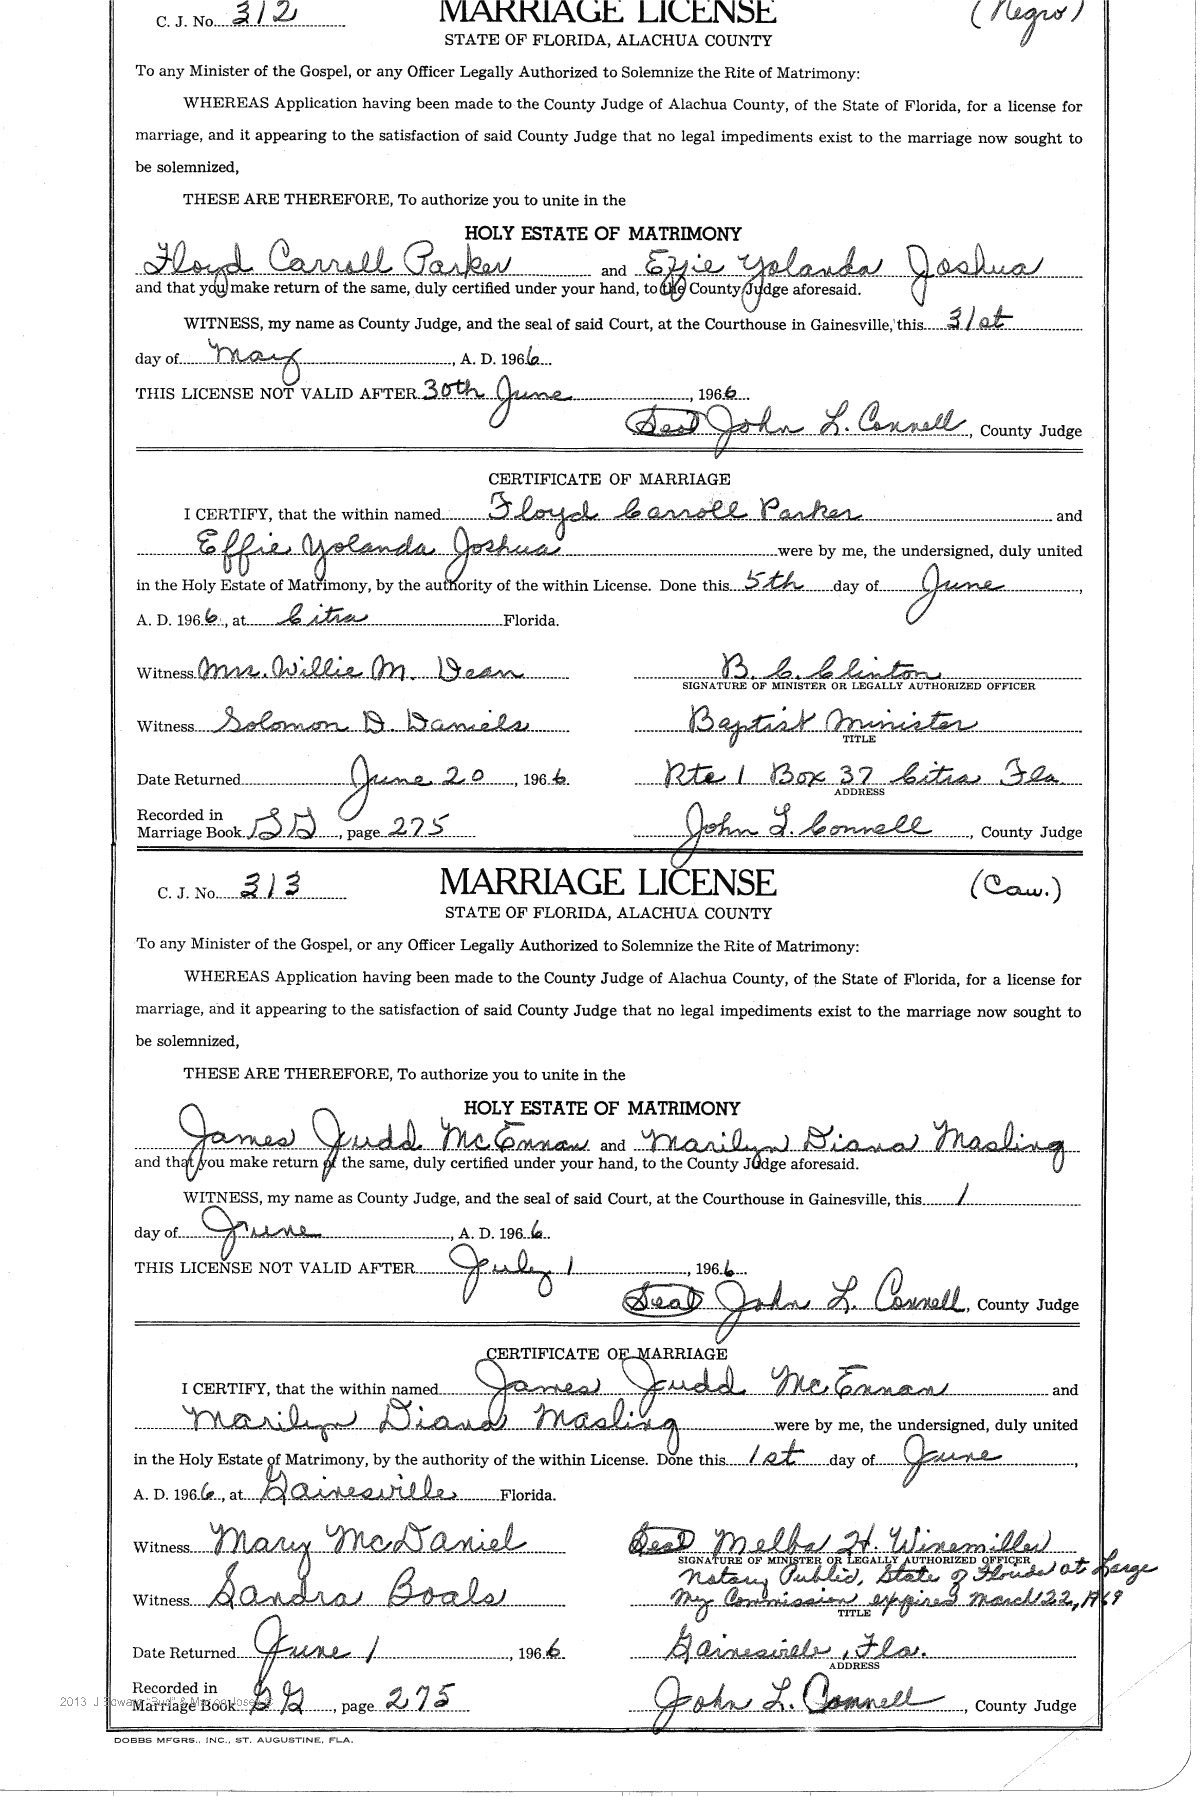 C. J. No. 312 MARRIAGE LICENSE (Negro)
STATE OF FLORIDA, ALACHUA COUNTY
To any Minister of the Gospel, or any Officer Legally Authorized to Solemnize the Rite of Matrimony:
WHEREAS Application having been made to the County Judge of Alachua County, of the State of Florida, for a license for
marriage, and it appearing to the satisfaction of said County Judge that no legal impediments exist to the marriage now sought to
be solemnized,
THESE ARE THEREFORE, To authorize you to unite in the
HOLY ESTATE OF MATRIMONY
Floyd Carroll Parker and Effie Yolanda Joshua
and that you make return of the same, duly certified under your hand, to the County Judge aforesaid.
WITNESS, my name as County Judge, and the seal of said Court, at the Courthouse in Gainesville, this 31st
day of May, A. D. 1966
THIS LICENSE NOT VALID AFTER 30th June, 1966
Seal John L. Connell, County Judge
CERTIFICATE OF MARRIAGE
I CERTIFY, that the within named Floyd Carroll Parker and
Effie Yolanda Joshua were by me, the undersigned, duly united
in the Holy Estate of Matrimony, by the authority of the within License. Done this 5th day of June,
A. D. 1966, at Citra Florida.
Witness Mrs. Willie M. Dean B. C. Clinton
SIGNATURE OF MINISTER OR LEGALLY AUTHORIZED OFFICER
Witness Solomon D. Daniels Baptist Minister
TITLE
Date Returned June 20, 1966. Rte 1 Box 37 Citra Fla
ADDRESS
Recorded in
Marriage Book GG, page 275 John L. Connell, County Judge
C. J. No. 313 MARRIAGE LICENSE (Cau.)
STATE OF FLORIDA, ALACHUA COUNTY
To any Minister of the Gospel, or any Officer Legally Authorized to Solemnize the Rite of Matrimony:
WHEREAS Application having been made to the County Judge of Alachua County, of the State of Florida, for a license for
marriage, and it appearing to the satisfaction of said County Judge that no legal impediments exist to the marriage now sought to
be solemnized,
THESE ARE THEREFORE, To authorize you to unite in the
HOLY ESTATE OF MATRIMONY
James Judd McEnnan and Marilyn Diana Masling
and that you make return of the same, duly certified under your hand, to the County Judge aforesaid.
WITNESS, my name as County Judge, and the seal of said Court, at the Courthouse in Gainesville, this 1
day of June, A. D. 1966.
THIS LICENSE NOT VALID AFTER July 1, 1966
Seal John L. Connell, County Judge
CERTIFICATE OF MARRIAGE
I CERTIFY, that the within named James Judd McEnnan and
Marilyn Diana Masling were by me, the undersigned, duly united
in the Holy Estate of Matrimony, by the authority of the within License. Done this 1st day of June,
A. D. 1966, at Gainesville Florida.
Witness Mary McDaniel Seal Melba H. Winemiller
SIGNATURE OF MINISTER OR LEGALLY AUTHORIZED OFFICER
Notary Public, State of Florida at Large
Witness Sandra Boals My Commission expires March 22, 1969
TITLE
Date Returned June 1, 1966. Gainesville, Fla.
ADDRESS
Recorded in
Marriage Book GG, page 275 John L. Connell, County Judge
DOBBS MFGRS., INC., ST. AUGUSTINE, FLA.
2013 J Edward "Bud" &